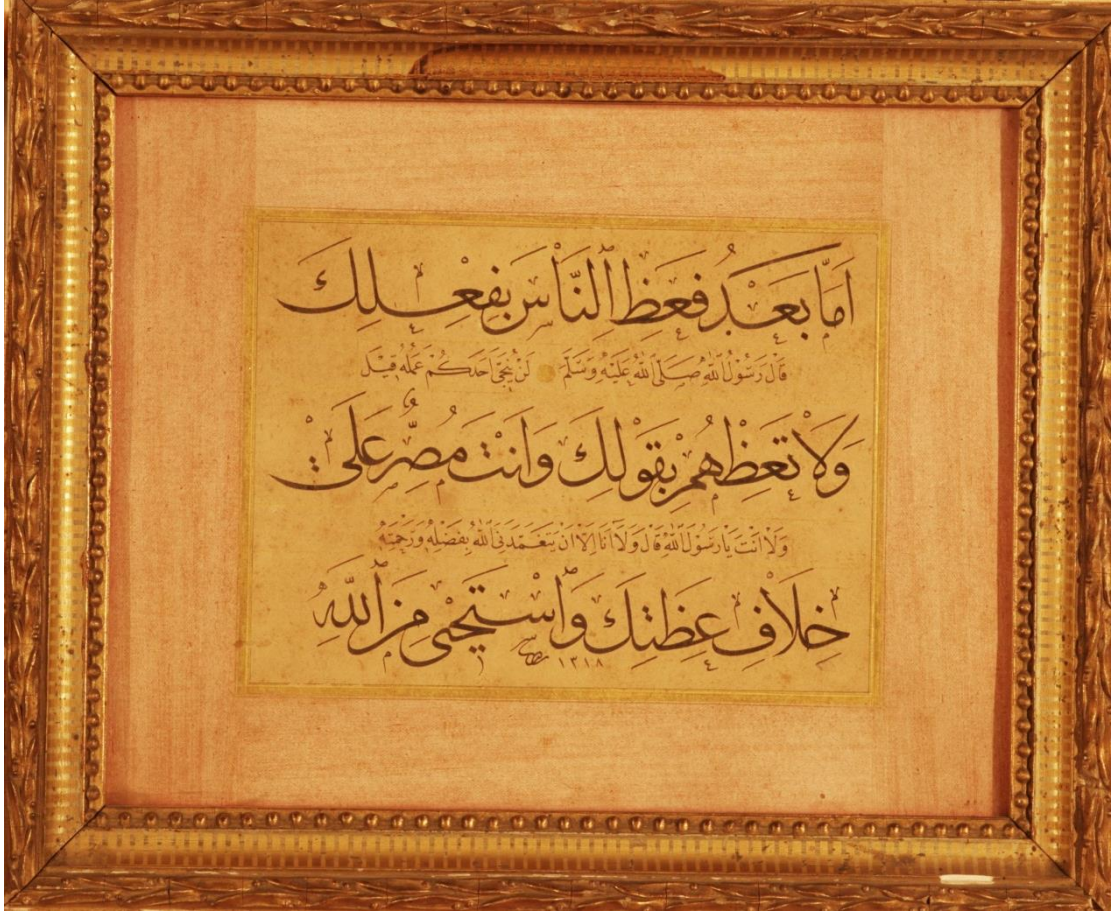 اَمَّا بَعْدُ فَعِظِ النَّاسَ بِفِعْلِكَ
قَالَ رَسُولُ اللّٰهِ صَلَّى اللّٰهُ عَلَيْهِ وَسَلَّمَ لَنْ يُنْجِىَ اَحَدَكُمْ عَمَلُهُ قِيلَ
وَلَا تَعِظْهُمْ بِقَوْلِكَ وَاَنْتَ مُصِرٌّ عَلٰى
وَلَا اَنْتَ يَا رَسُولَ اللّٰهِ قَالَ وَلَا اَنَا اِلَّا اَنْ يَتَغَمَّدَنِىَ اللّٰهُ بِفَضْلِهِ وَرَحْمَتِهِ
خِلَافِ عِظَتِكَ وَاسْتَحْيِى مِنَ اللّٰهِ
١٣١٨